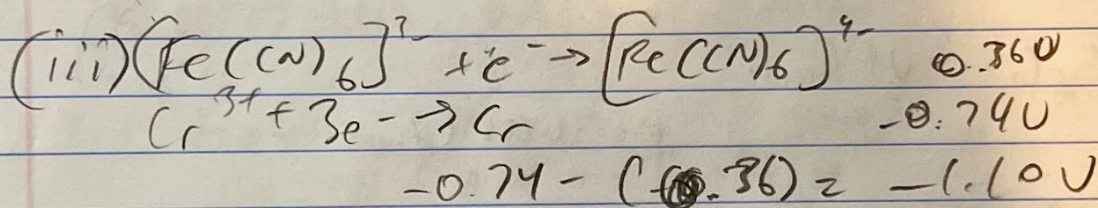 (iii) [Fe(CN)6]3- + e- → [Fe(CN)6]4- 0.36V
Cr3+ + 3e- → Cr -0.74V
-0.74 - (0.36) = -1.10V